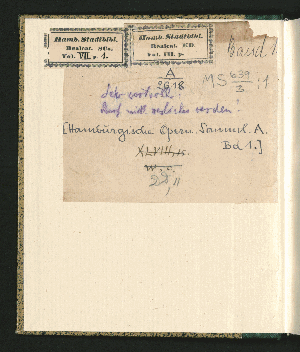 Hamb. Stadtbibl.
Realcat. SCa.
Vol. VII, p. 1.
Hamb. Stadtbibl.
Realcat. KD.
Vol. III. p.
Band 1
A
2618
MS 639/3 : 1
Sehr wertvoll!
Darf nicht verliehen werden!
[Hamburgische Opern. Samml. A.
Bd 1.]
XLVIII,
22,"